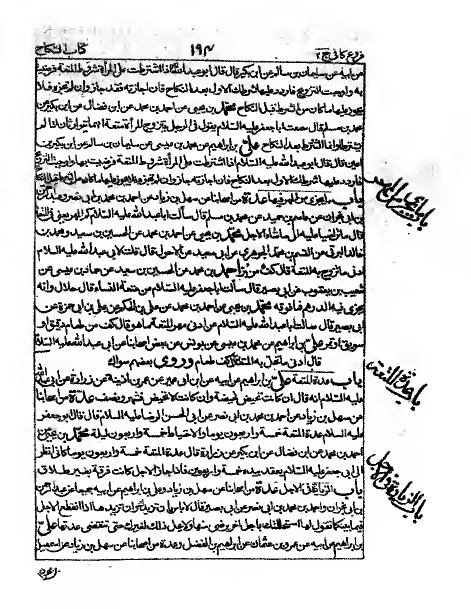 فروع كافى ج ٢ ١٩٤ كتاب النكاح
عن ابيه عن سليمان بن سالم عن ابن بكير قال قال ابو عبد الله اذا اشترطت على المرأة شروط المتعة فرضيت
به واوجبت التزويج فاردد عليها شرطك الاول بعد النكاح فان اجازته فقد جاز وان لم تجزه فلا
يجوز عليها ما كان من الشرط قبل النكاح محمد بن يحيى عن احمد بن محمد عن ابن فضال عن ابن بكير عن
محمد بن مسلم قال سمعت ابا جعفر عليه السلام يقول فى الرجل يتزوج المرأة متعة انهما يتوارثان اذا لم
يشترطا وانما الشرط بعد النكاح على بن ابراهيم عن محمد بن عيسى عن سليمان بن سالم عن ابن بكير بن
اعين قال قال ابو عبد الله عليه السلام اذا اشترطت على المرأة شروط المتعة فرضيت بها واوجبت التزويج
فاردد عليها شرطك الاول بعد النكاح فان اجازته جاز وان لم تجزه فلا يجوز عليها ما كان من الشرط قبل النكاح
باب ما يجزى من المهر فيها عدة من اصحابنا عن سهل بن زياد عن احمد بن محمد بن ابى نصر وعبد الرحمن
بن ابى نجران عن عاصم بن حميد عن محمد بن مسلم قال سألت ابا عبد الله عليه السلام كم المهر يعنى فى المتعة
قال ما تراضيا عليه الى ما شاءا من الاجل محمد بن يحيى عن احمد بن محمد عن الحسين بن سعيد ومحمد بن
خالد البرقى عن القسم بن محمد الجوهرى عن ابى سعيد عن الاحول قال قلت لابى عبد الله عليه السلام
ادنى ما يتزوج به المتعة قال كف من بر احمد بن محمد عن الحسين بن سعيد عن حماد بن عيسى عن
شعيب بن يعقوب عن ابى بصير قال سألت ابا جعفر عليه السلام عن متعة النساء قال حلال وانه
يجزى فيه الدرهم فما فوقه محمد بن يحيى عن احمد بن محمد عن على بن الحكم عن على بن ابى حمزة عن
ابى بصير قال سألت ابا عبد الله عليه السلام عن ادنى مهر المتعة ما هو قال كف من طعام دقيق او
سويق او تمر على بن ابراهيم عن محمد بن عيسى عن يونس عن بعض اصحابنا عن ابى عبد الله عليه السلام
قال ادنى ما تحل به المتعة كف طعام وروى بعضهم سواك
باب عدة المتعة على بن ابراهيم عن ابيه عن ابن ابى عمير عن عمر بن اذينة عن زرارة عن ابى عبد الله
عليه السلام انه قال ان كانت تحيض فحيضة وان كانت لا تحيض فشهر ونصف عدة من اصحابنا
عن سهل بن زياد عن احمد بن محمد بن ابى نصر عن ابى الحسن الرضا عليه السلام قال قال ابو جعفر
عليه السلام عدة المتعة خمسة واربعون يوما والاحتياط خمسة واربعون ليلة محمد بن يحيى عن
احمد بن محمد عن ابن فضال عن ابن بكير عن زرارة قال عدة المتعة خمسة واربعون يوما كانى انظر
الى ابى جعفر عليه السلام يعقد بيده خمسة واربعين فاذا جاز الاجل كانت فرقة بغير طلاق
باب الزيادة فى الاجل عدة من اصحابنا عن سهل بن زياد وعلى بن ابراهيم عن ابيه جميعا عن عبد الرحمن
بن ابى نجران واحمد بن محمد بن ابى نصر عن ابى بصير قال لا بأس بان تزيدك وتزيدها اذا انقطع الاجل
فيما بينكما تقول لها استحللتك باجل اخر برضى منها ولا يحل ذلك لغيرك حتى تنقضى عدتها على
بن ابراهيم عن ابيه عن عمرو بن عثمان عن ابراهيم بن الفضل وعدة من اصحابنا عن سهل بن زياد عن اسمعيل
باب ما يجزى من المهر
باب عدة المتعة
باب الزيادة فى الاجل